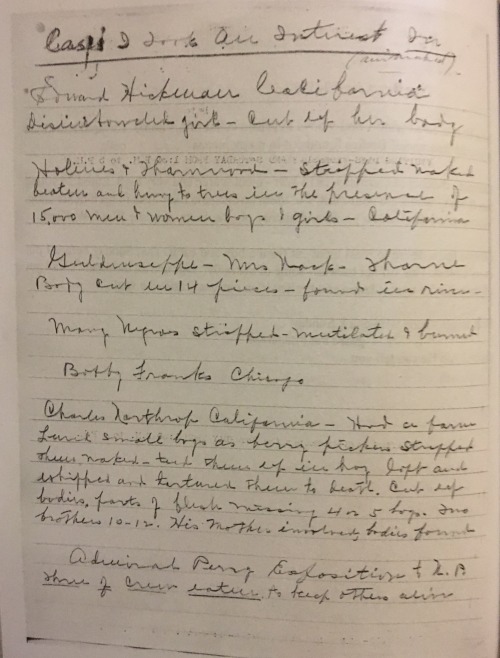 Cases I Took An Interest In
(animated)
Edward Hickman California
up her body
Holmes & Thurmond – Stripped naked
beaten and hung to trees in the presence of
15,000 men & women boys & girls – California
Guldensuppe – Mrs Nack – Thorne
Body cut in 14 pieces – found in river –
Many Negroes stripped – mutilated & burned
Bobby Franks Chicago
Charles Northrop California – Had a farm
small boys as berry pickers stripped
them naked – tied them up in hay loft and
whipped and tortured them to death. Cut up
bodies, parts of flesh missing 4 or 5 boys. Two
brothers 10–12. His Mother involved, bodies found
Admiral Perry Exposition to N. P.
three of crew eaten to keep others alive